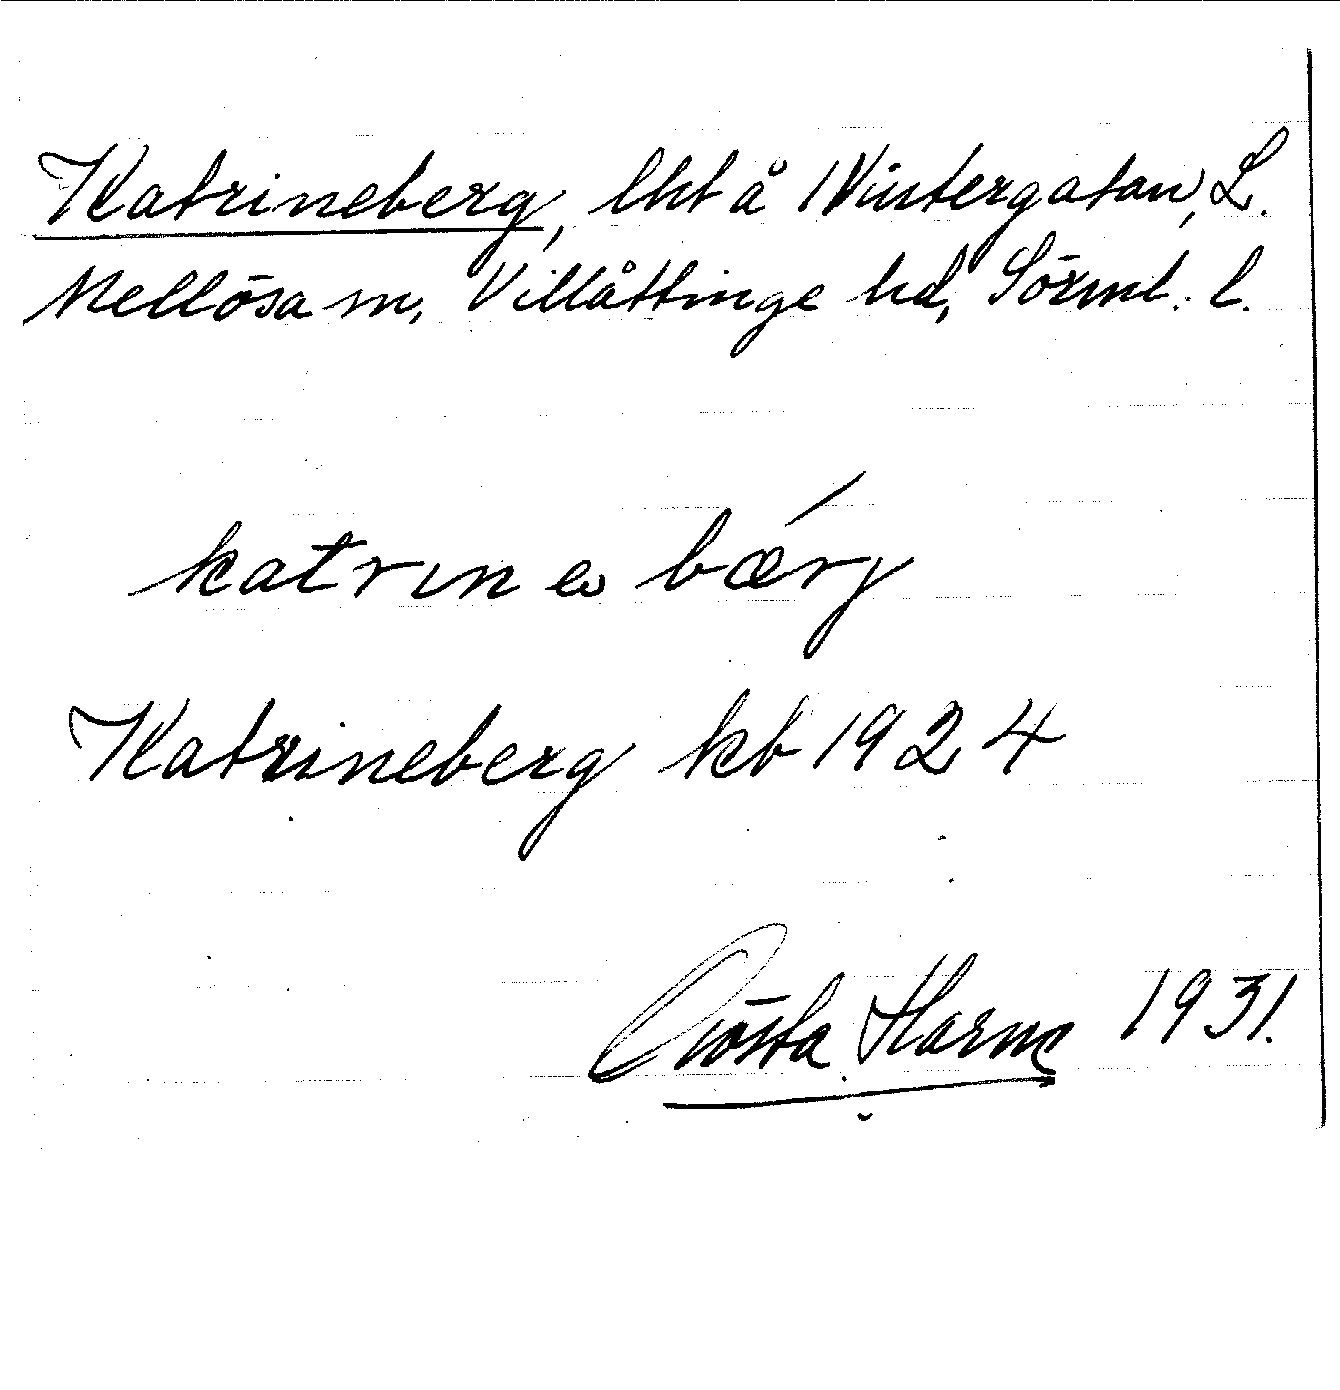 Katrineberg, lht å Wintergatan, L.
Mellösa sn, Villåttinge hd, Sörml. l.
katrin bǽrj
Katrineberg kb 1924
Gösta Harne 1931.